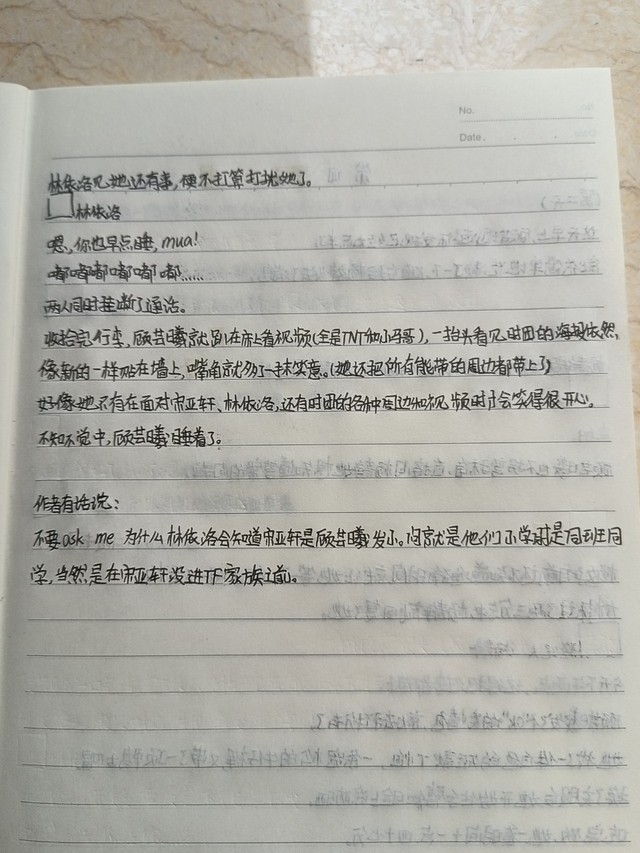 No.
Date.
林依洛见她还有事,便不打算打扰她了。
林依洛
嗯,你也早点睡,mua!
嘟嘟嘟嘟嘟嘟……
两人同时挂断了通话。
收拾完行李,顾芸曦就趴在床上看视频(全是TNT和小马哥),一抬头看见时团的海报依然
像新的一样贴在墙上,嘴角就多了一抹笑意。(她还把所有能带的周边都带上了)
好像她只有在面对宋亚轩、林依洛,还有时团的各种周边和视频时才会笑得很开心。
不知不觉中,顾芸曦睡着了。
作者有话说:
不要ask me 为什么林依洛会知道宋亚轩是顾芸曦发小。问就是他们小学时是同班同
学,当然是在宋亚轩没进TF家族之前。